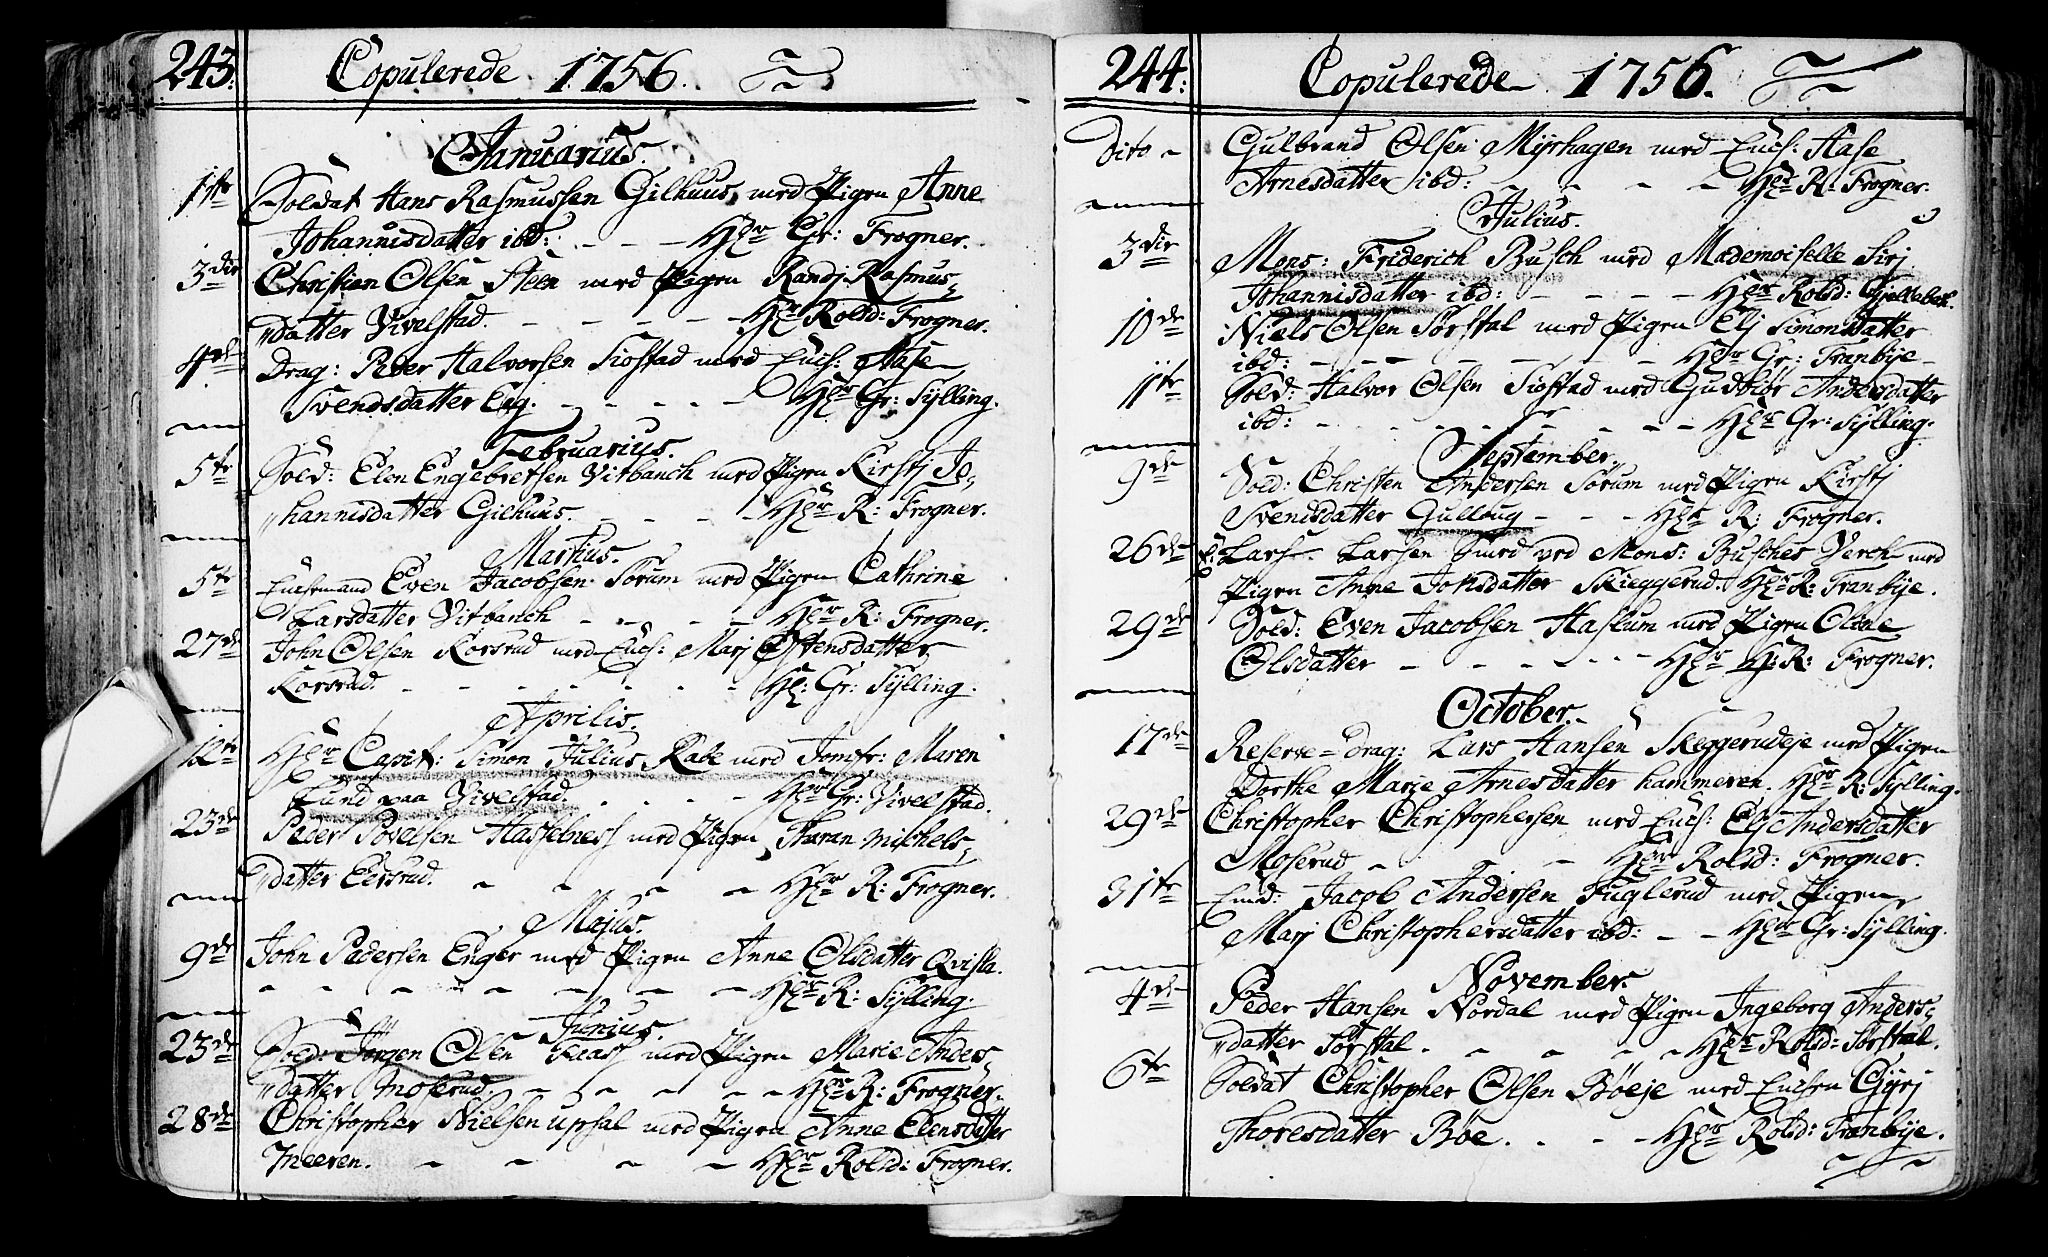 243. Copulerede 1756.
Januarius.
1ste Soldat Hans Rasmussen Gilhuus med Pigen Anne
Johannisdatter ibd: - - - Hr Gr: Frogner.
3die Christian Olsen Steen med Pigen Randj Rasmus„
„datter Vivelstad. - - - - - Hr Rolsd: Frogner.
4de Drag: Peder Halvorsen Siostad med Enchs: Aase
Svendsdatter Eng. - - - - - Hr Gr: Sylling.
Februarius.
5te Sold: Elen Engebretsen Vitbanch med Pigen Kirstj Jo„
„hannisdatter Gilhuus. - - - - Hr R: Frogner.
Martius.
5te Enchemand Even Jacobsen Sørum med Pigen Cathrine
Larsdatter Vitbanch - - - - Hr R: Frogner.
27de John Olsen Korsrud med Ench: Marj Østensdatter
Korsrud. - - - - - - - H: Gr: Sylling.
Aprilis.
Hr Capit: Simon Julius Rabe med Jomfr: Maren
Lund paa Vivelstad. - - - - Hr Gr: Vivelstad.
23de Peder Povelsen Hasselness med Pigen Karan Michels„
„datter Eersrud. - - - - Hr R: Frogner.
Majus.
9de John Pedersen Enger med Pigen Anne Olsdatter Qvisla.
- - - - - - - Hr R: Sylling.
Junius.
23de Sold: Jörgen Olsen med Pigen Marie Anders„
„datter Moserud - - - - - Hr R: Frogner.
28de Christopher Nielsen upsal med Pigen Anne Elensdatter
Meeren. - - - - Hr Rolsd: Frogner.
244: Copulerede 1756.
Dito - Gulbrand Olsen Myrhagen med Enchs: Aase
Arnesdatter ibd: - - - - Hr R: Frogner.
Julius.
3die Mons: Friderich Busch med Mademoiselle Sirj
Johannisdatter ibd: - - - - Hr Rolsd: Gjellebek.
10de Niels Olsen Sørstal med Pigen Elj Simonsdatter
ibd: - - - - - - - Hr Gr: Tranbÿe
11te Sold: Halvor Olsen Siostad med Gudbiør Andersdatter
ibd: - - - - - - - - Hr Gr: Sylling.
September.
9de Sold: Christen Andersen Sørum med Pigen Kirstj
Svendsdatter Gulloug - - - Hr R: Frogner.
26de Lars Larsen Smed ved Mons: Busches Verch med
Pigen Anne Johsdatter Skieggerud. Hr R: Tranbÿe.
29de Sold: Even Jacobsen Haslum med Pigen Oleae
Olsdatter - - - - - - Hr H: R: Frogner.
October.
17de Reserve=Drag: Lars Hansen Skeggerudeje med Pigen
Dorthe Marie Arnesdatter hammeren. Hr R: Sylling.
29de Christopher Christophersen med Ench: Elj Andersdatter
Moserud - - - Hr Rolsd: Frogner.
31te Enkd: Jacob Andersen Fuglerud med Pigen
Marj Christophersdatter ibd: - - Hr Gr: Sylling.
November.
4de Peder Hansen Nordal med Pigen Ingeborg Anders„
„datter Sørstal. - - - - - Hr Rolsd: Sørstal.
6te Soldat Christopher Olsen Böeje med Enchen Gyrj
Thoresdatter Böe. - - - Hr Rolsd: Tranbÿe.